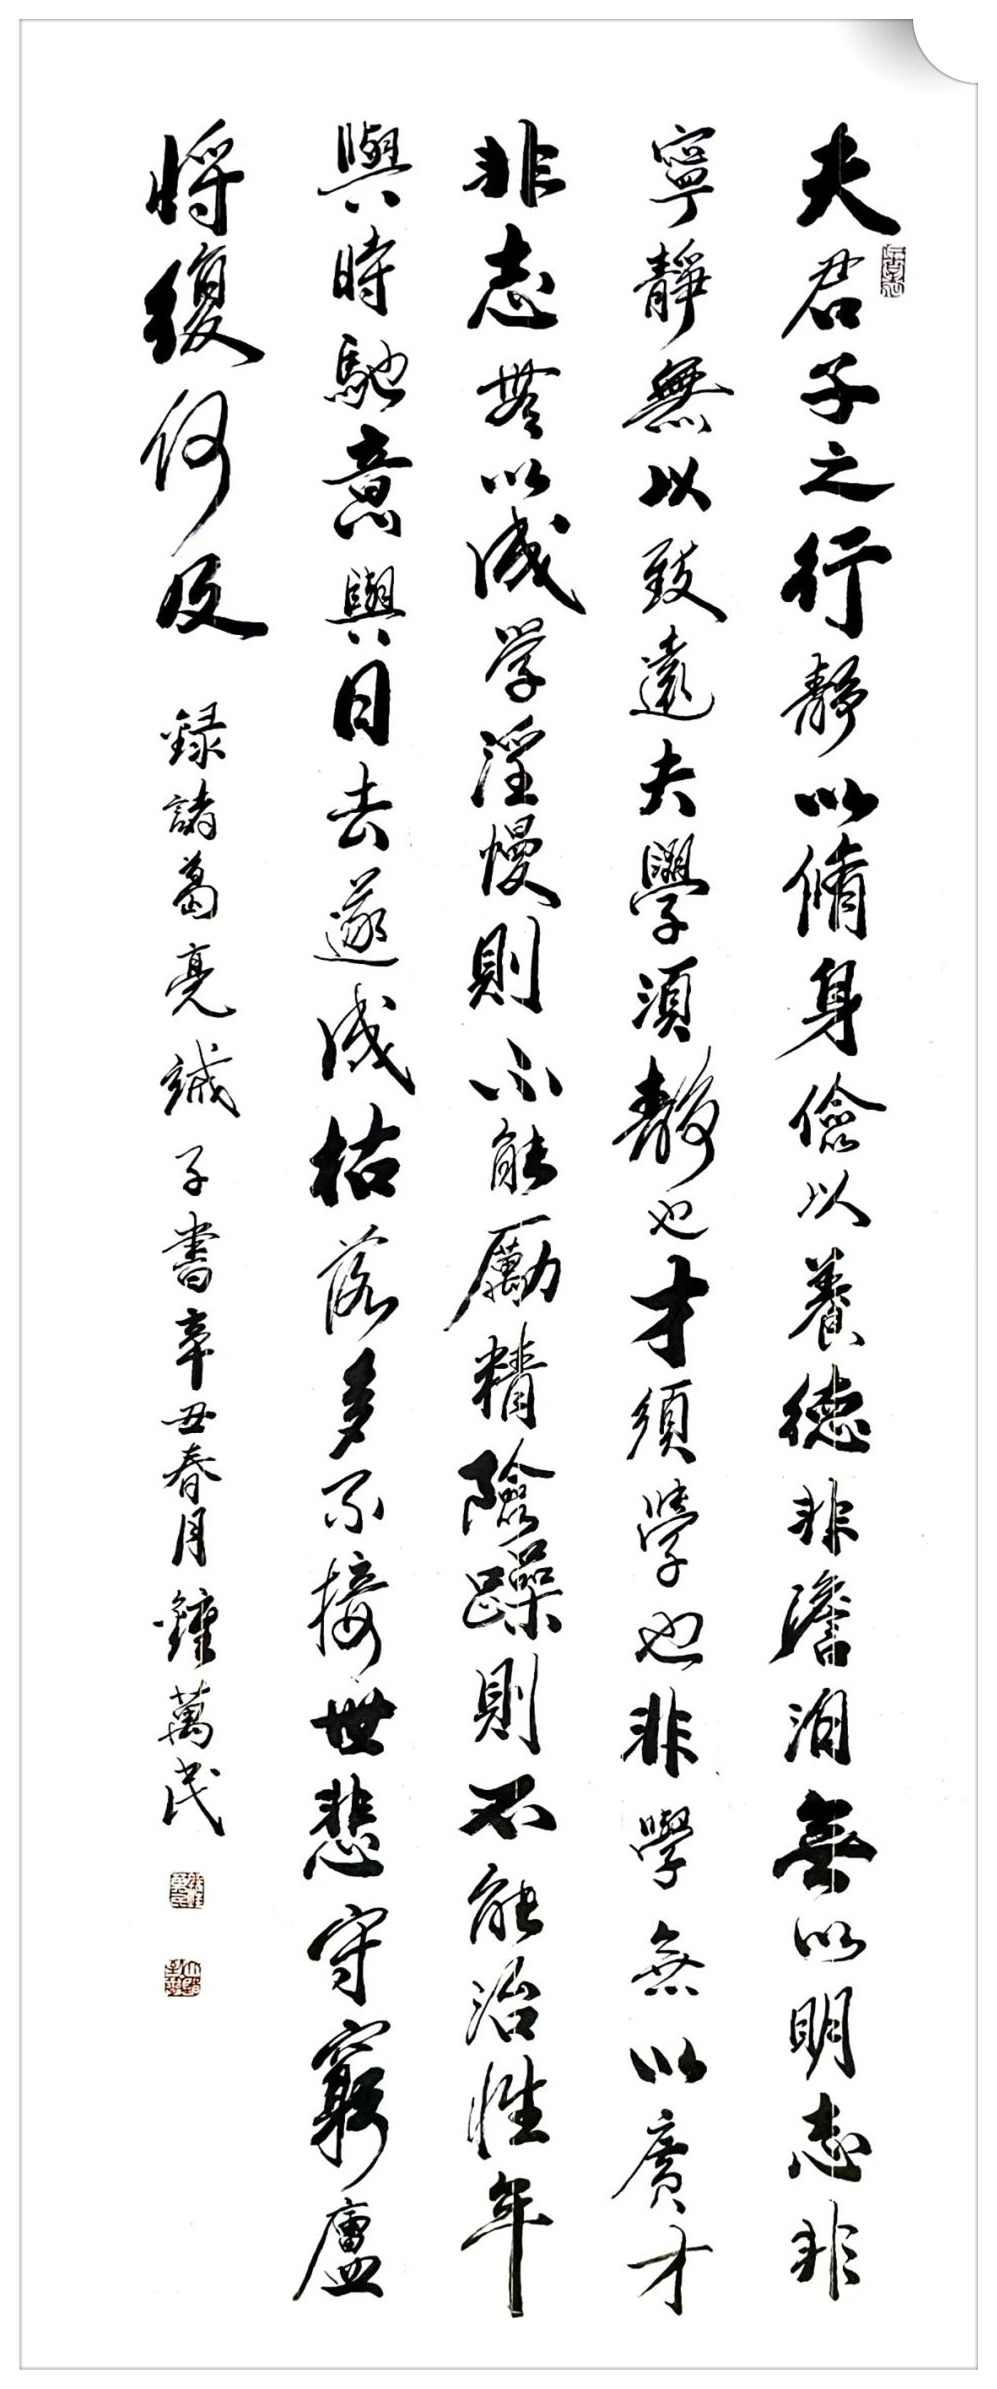 夫君子之行靜以脩身儉以養德非澹泊無以明志非
寧靜無以致遠夫學須靜也才須學也非學無以廣才
非志無以成學淫慢則不能勵精險躁則不能治性年
與時馳意與日去遂成枯落多不接世悲守窮廬
將復何及
錄諸葛亮誡子書辛丑春月鐘萬民